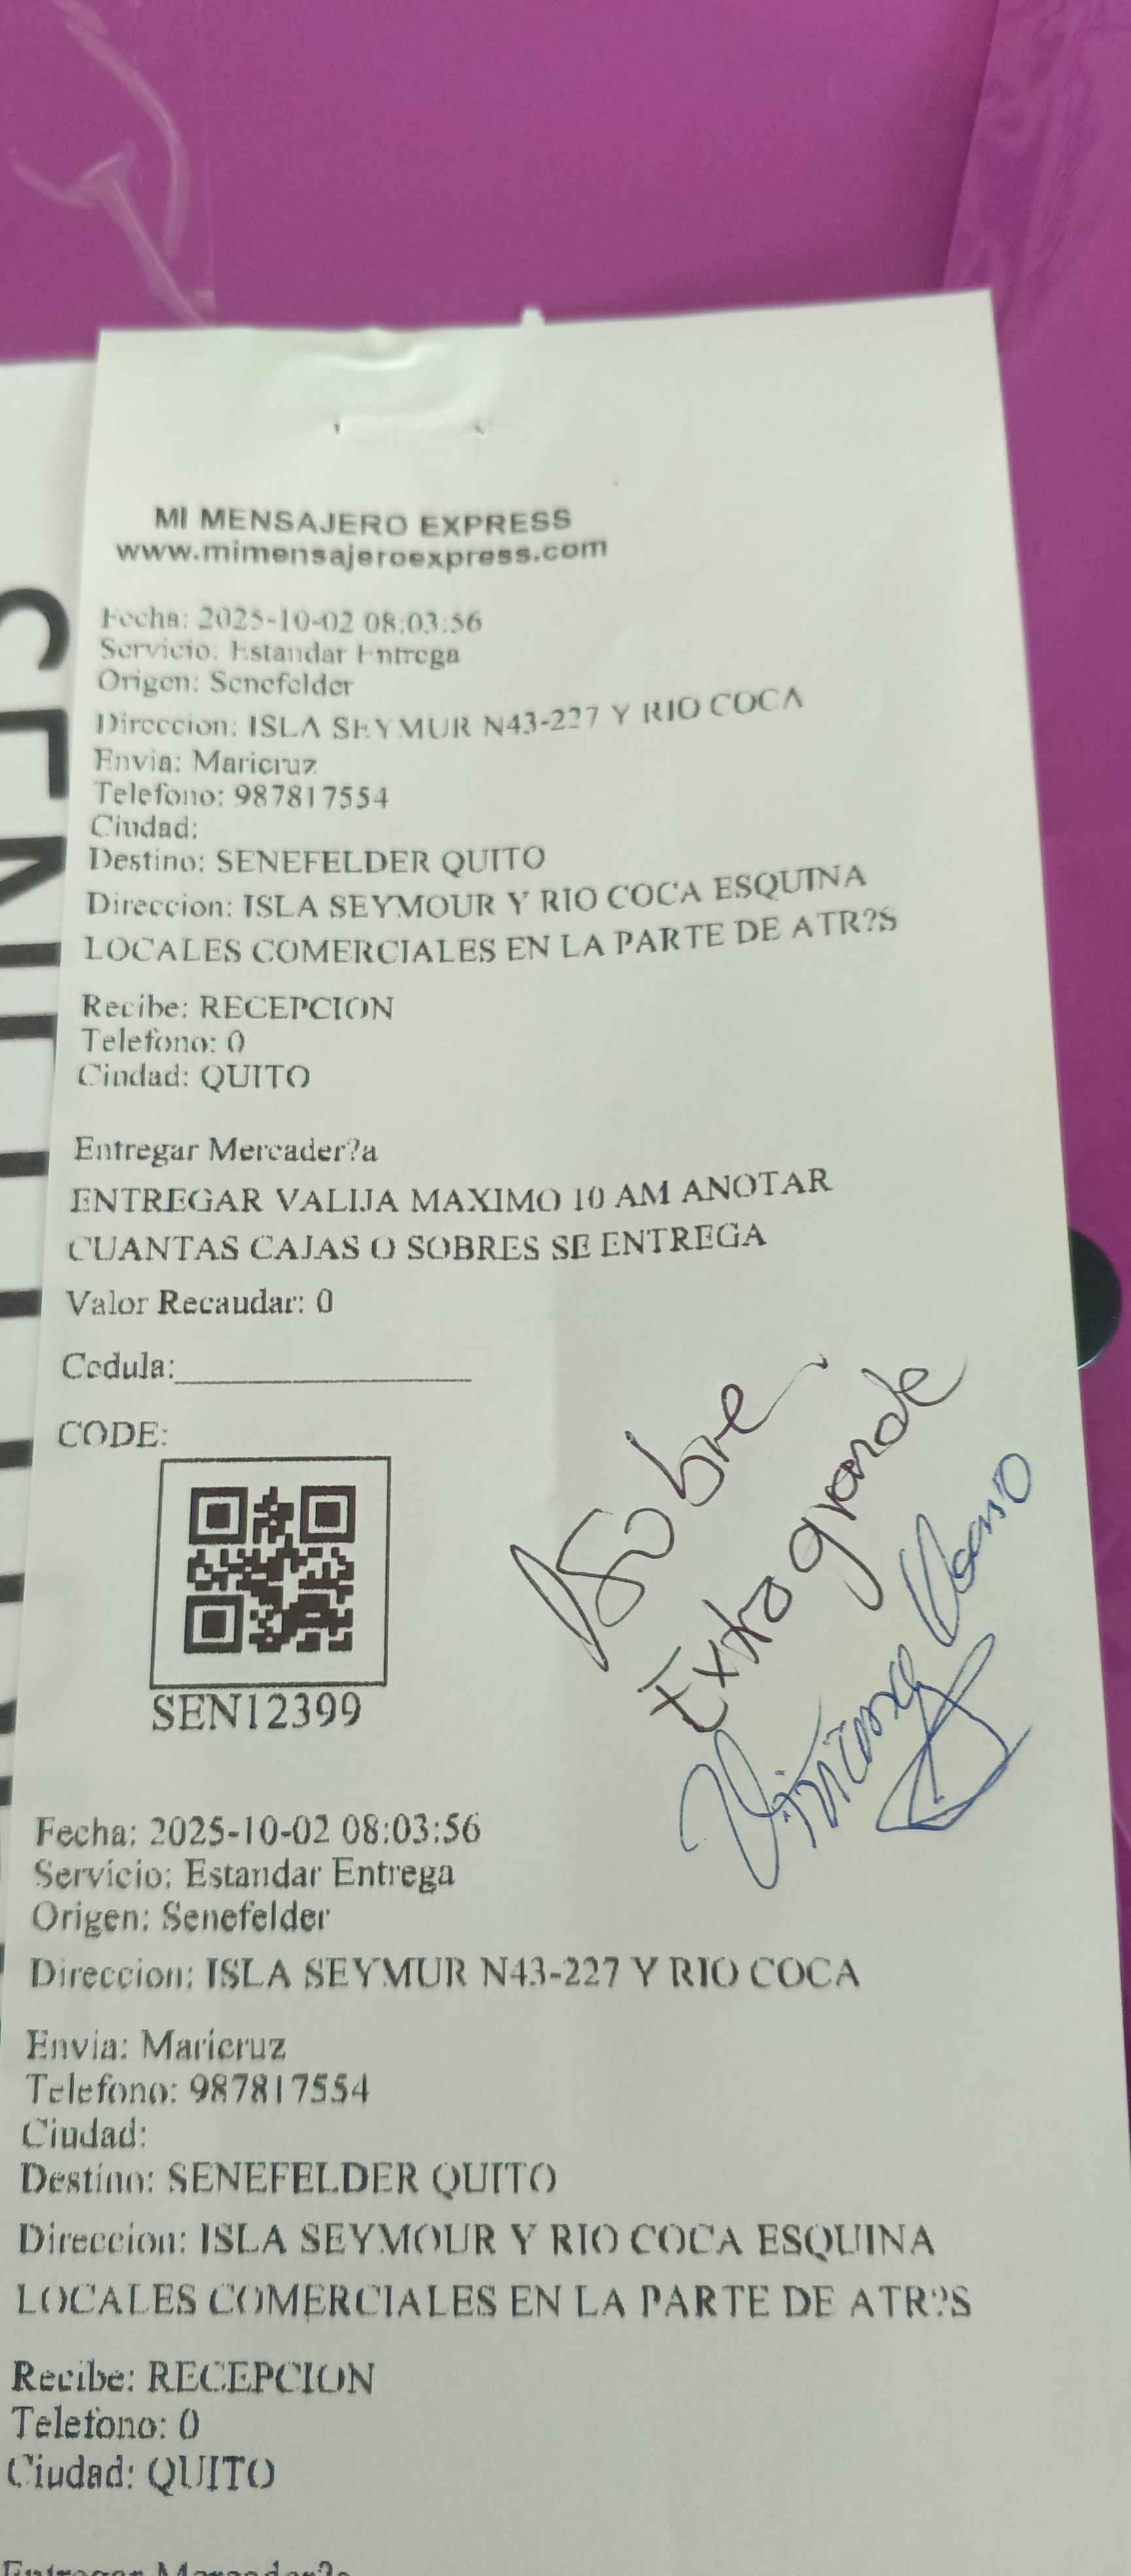 MI MENSAJERO EXPRESS
www.mimensajeroexpress.com
Fecha: 2025-10-02 08:03:56
Servicio: Estandar Entrega
Origen: Senefelder
Direccion: ISLA SEYMUR N43-227 Y RIO COCA
Envia: Maricruz
Telefono: 987817554
Ciudad:
Destino: SENEFELDER QUITO
Direccion: ISLA SEYMOUR Y RIO COCA ESQUINA
LOCALES COMERCIALES EN LA PARTE DE ATR?S
Recibe: RECEPCION
Telefono: 0
Ciudad: QUITO
Entregar Mercader?a
ENTREGAR VALIJA MAXIMO 10 AM ANOTAR
CUANTAS CAJAS O SOBRES SE ENTREGA
Valor Recaudar: 0
Cedula:
CODE:
SEN12399
1 Sobre
Extra grande
Fecha: 2025-10-02 08:03:56
Servicio: Estandar Entrega
Origen: Senefelder
Direccion: ISLA SEYMUR N43-227 Y RIO COCA
Envia: Maricruz
Telefono: 987817554
Ciudad:
Destino: SENEFELDER QUITO
Direccion: ISLA SEYMOUR Y RIO COCA ESQUINA
LOCALES COMERCIALES EN LA PARTE DE ATR?S
Recibe: RECEPCION
Telefono: 0
Ciudad: QUITO
Entregar Mercader?a